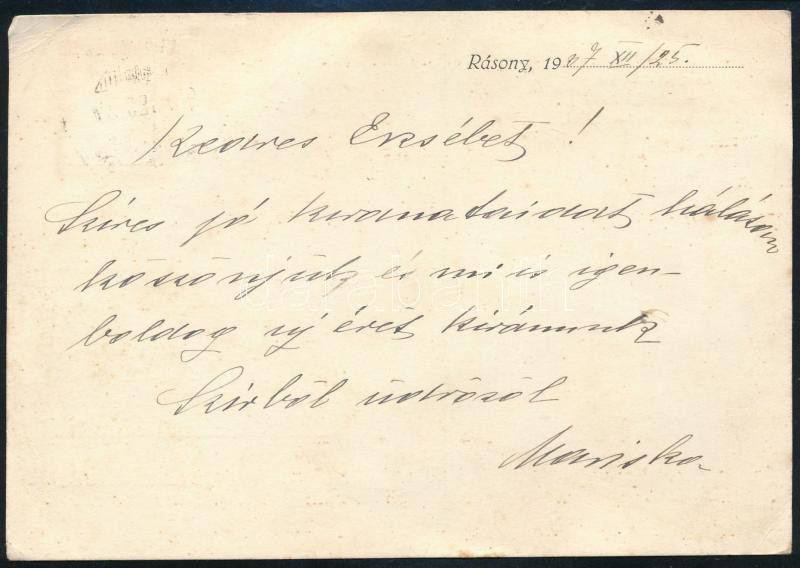 Rásony, 1927 XII/25.
Kedves Erzsébet!
Szíves jó kivánataidat hálásan
köszönjük és mi is igen
boldog új évet kivánunk
Szívből üdvözöl
Mariska
darabanth